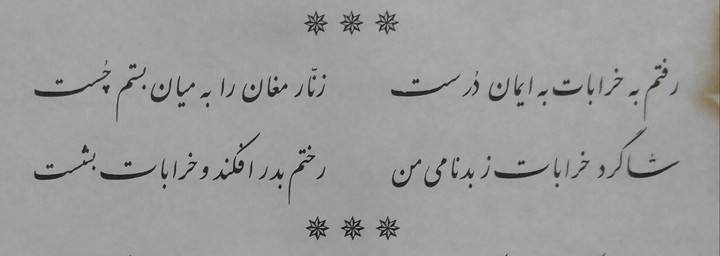 رفتم به خرابات به ایمان دُرست    زنّار مغان را به میان بستم چُست
شاگرد خرابات ز بدنامی من    رختم بدر افکند و خرابات بشست